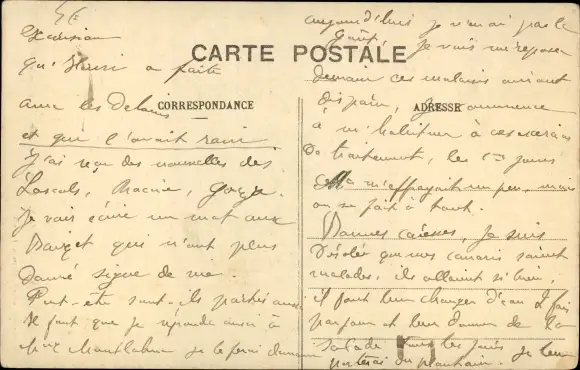 Excursion
qu'Henri a faite
avec les Delain
et qui l'avait ravi
J'ai reçu des nouvelles des
Lascols, Racine,
Je vais écrire un mot aux
qui n'ont plus
Donné signe de vie.
Peut-être sont-ils partis aussi
Il faut que je réponde aussi à
je le ferai demain
CARTE POSTALE
CORRESPONDANCE
ADRESSE
aujourd'hui je n'ai pas le
Je vais me reposer
demain ces malaises auront
disparu, je commence
à m'habituer à ces
de traitement, les 1ers jours
cela m'effrayait un peu, mais
on se fait à tout.
Bonnes caresses, je suis
Désolée que mes canaris soient
malades, ils allaient si bien,
il faut leur changer d'eau 2 fois
par jour et leur donner de la
salade tous les jours je leur
porterai du plantain.